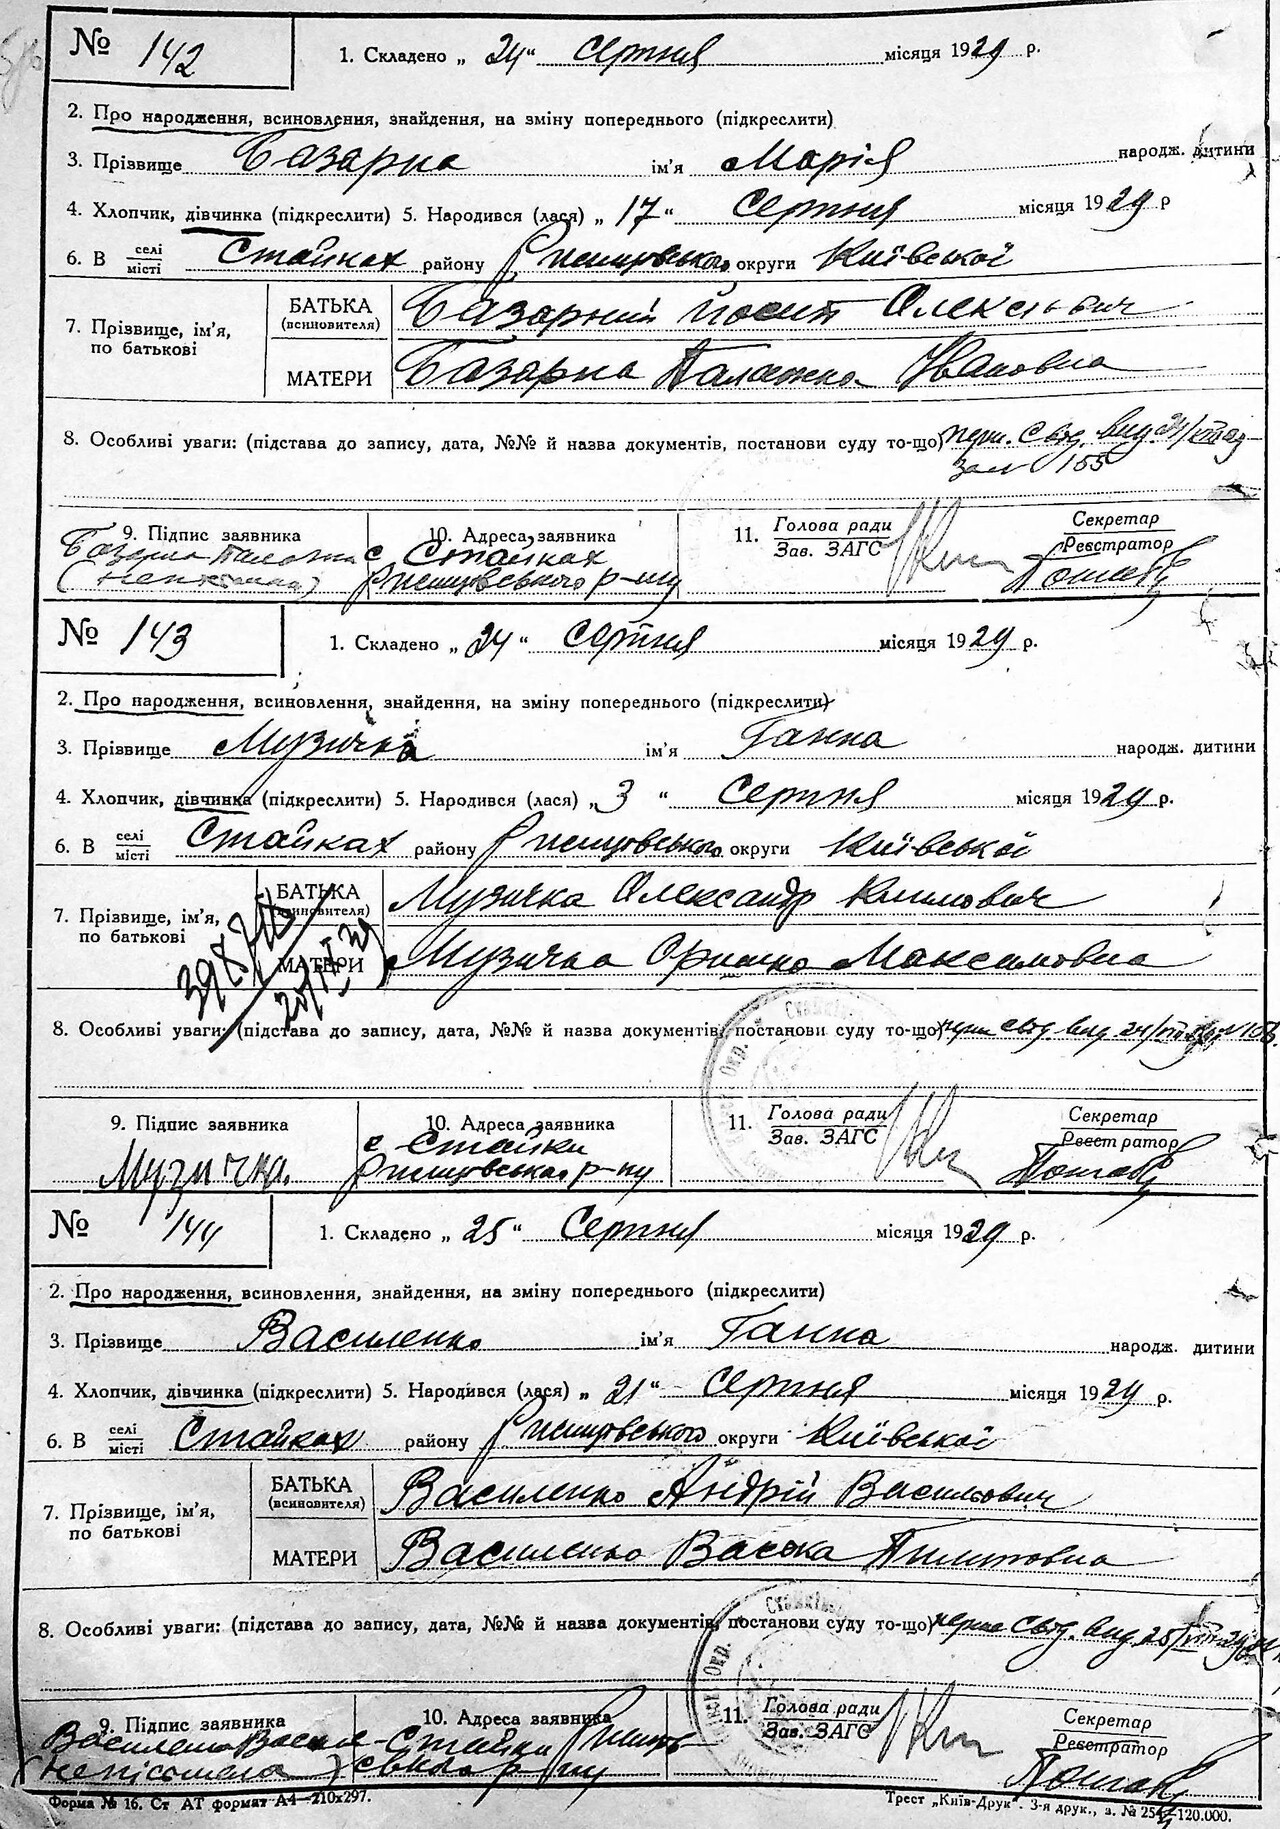 № 142 1. Складено „ 24 “ Серпня місяця 1929 р.
2. Про народження, всиновлення, знайдення, на зміну попереднього (підкреслити)
3. Прізвище Базарна ім'я Марія народж. дитини
4. Хлопчик, дівчинка (підкреслити) 5. Народився (лася) „ 17 “ Серпня місяця 1929 р
6. В селі місті Стайках району Ржищівського округи Київської
7. Прізвище, ім'я, по батькові
БАТЬКА (всиновителя) Базарний Йосип Олексієвич
МАТЕРИ Базарна Палажка Ивановна
8. Особливі уваги: (підстава до запису, дата, №№ й назва документів, постанови суду то-що) Свід. вид. 24/
155
9. Підпис заявника 10. Адреса заявника 11. Голова ради Зав. ЗАГС Секретар Реєстратор
Базарна с Стайках
Ржищівського р-ну
№ 143 1. Складено „ 24 “ Серпня місяця 1929 р.
2. Про народження, всиновлення, знайдення, на зміну попереднього (підкреслити)
3. Прізвище Музичка ім'я Ганна народж. дитини
4. Хлопчик, дівчинка (підкреслити) 5. Народився (лася) „ 3 “ Серпня місяця 1929 р.
6. В селі місті Стайках району Ржищівського округи Київської
7. Прізвище, ім'я, по батькові
БАТЬКА (всиновителя) Музичка Олександр Климович
МАТЕРИ Музичка Оришка Максимовна
8. Особливі уваги: (підстава до запису, дата, №№ й назва документів, постанови суду то-що) свід. вид. 24/
9. Підпис заявника 10. Адреса заявника 11. Голова ради Зав. ЗАГС Секретар Реєстратор
Музичка. с Стайки
Ржищівськаго р-ну
№ 144 1. Складено „ 25 “ Серпня місяця 1929 р.
2. Про народження, всиновлення, знайдення, на зміну попереднього (підкреслити)
3. Прізвище Василенко ім'я Ганна народж. дитини
4. Хлопчик, дівчинка (підкреслити) 5. Народився (лася) „ 21 “ Серпня місяця 1929 р.
6. В селі місті Стайках району Ржищівського округи Київської
7. Прізвище, ім'я, по батькові
БАТЬКА (всиновителя) Василенко Андрій Васильович
МАТЕРИ Василенко Васька Пилиповна
8. Особливі уваги: (підстава до запису, дата, №№ й назва документів, постанови суду то-що) Свід. вид 25/
9. Підпис заявника 10. Адреса заявника 11. Голова ради Зав. ЗАГС Секретар Реєстратор
Василенко Стайки Ржищ
р-ну
Форма № 16. Ст АТ формат А4—210х297. Трест „Київ-Друк“. 3-я друк., з. № 254 —120.000.